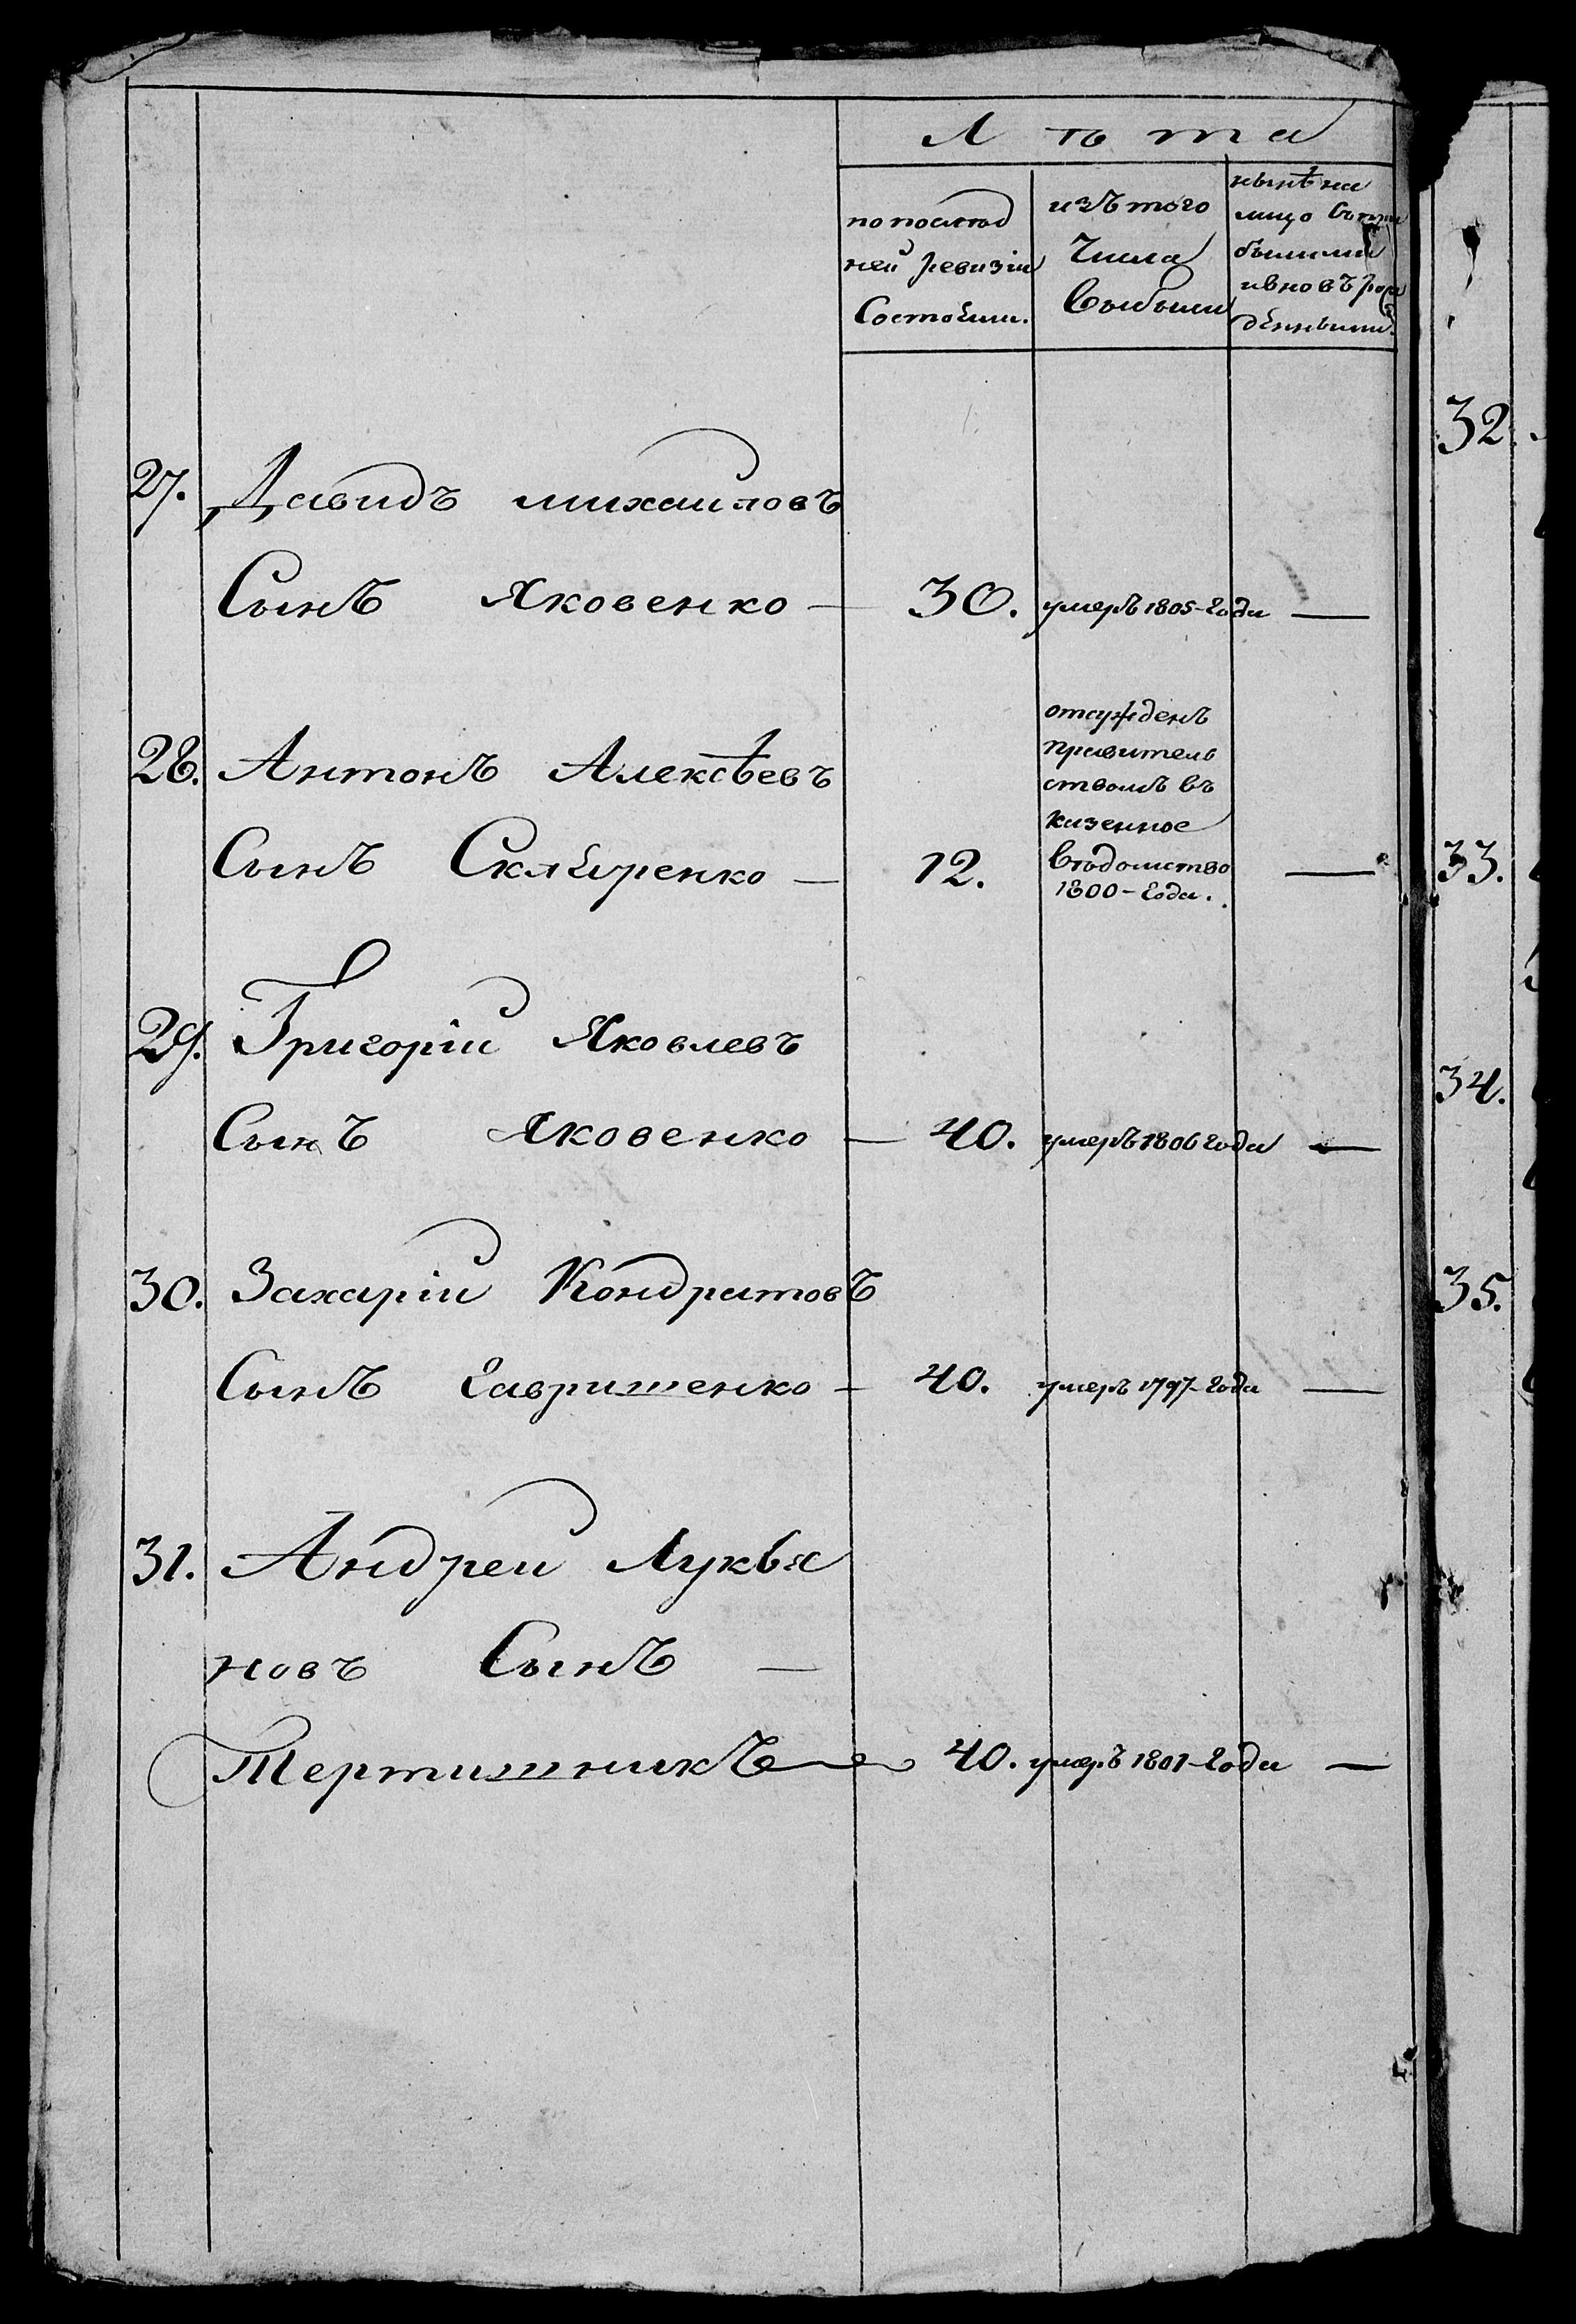 Лѣта
по послѣд
ней ревизіи
Состояли.
изъ того
Числа
выбыли
нынѣ на
лицо съ при
былыми
и вновь рож
денными.
27. Давидъ михаиловъ
Сынъ Яковенко — 30. умеръ 1805-года —
28. Антонъ Алексѣевъ
отсужденъ
правитель
ствомъ въ
казенное
Сынъ Скляренко — 12. вѣдомство —
1800-года.
29. Григоріи Яковлевъ
Сынъ Яковенко — 40. умеръ 1806 года —
30. Захаріи Кондратовъ
Сынъ Гавришенко — 40. умеръ 1797-года —
31. Андреи Лукья
новъ Сынъ —
Тертишникъ — 40. умеръ 1801-года —
32.
33.
34.
35.